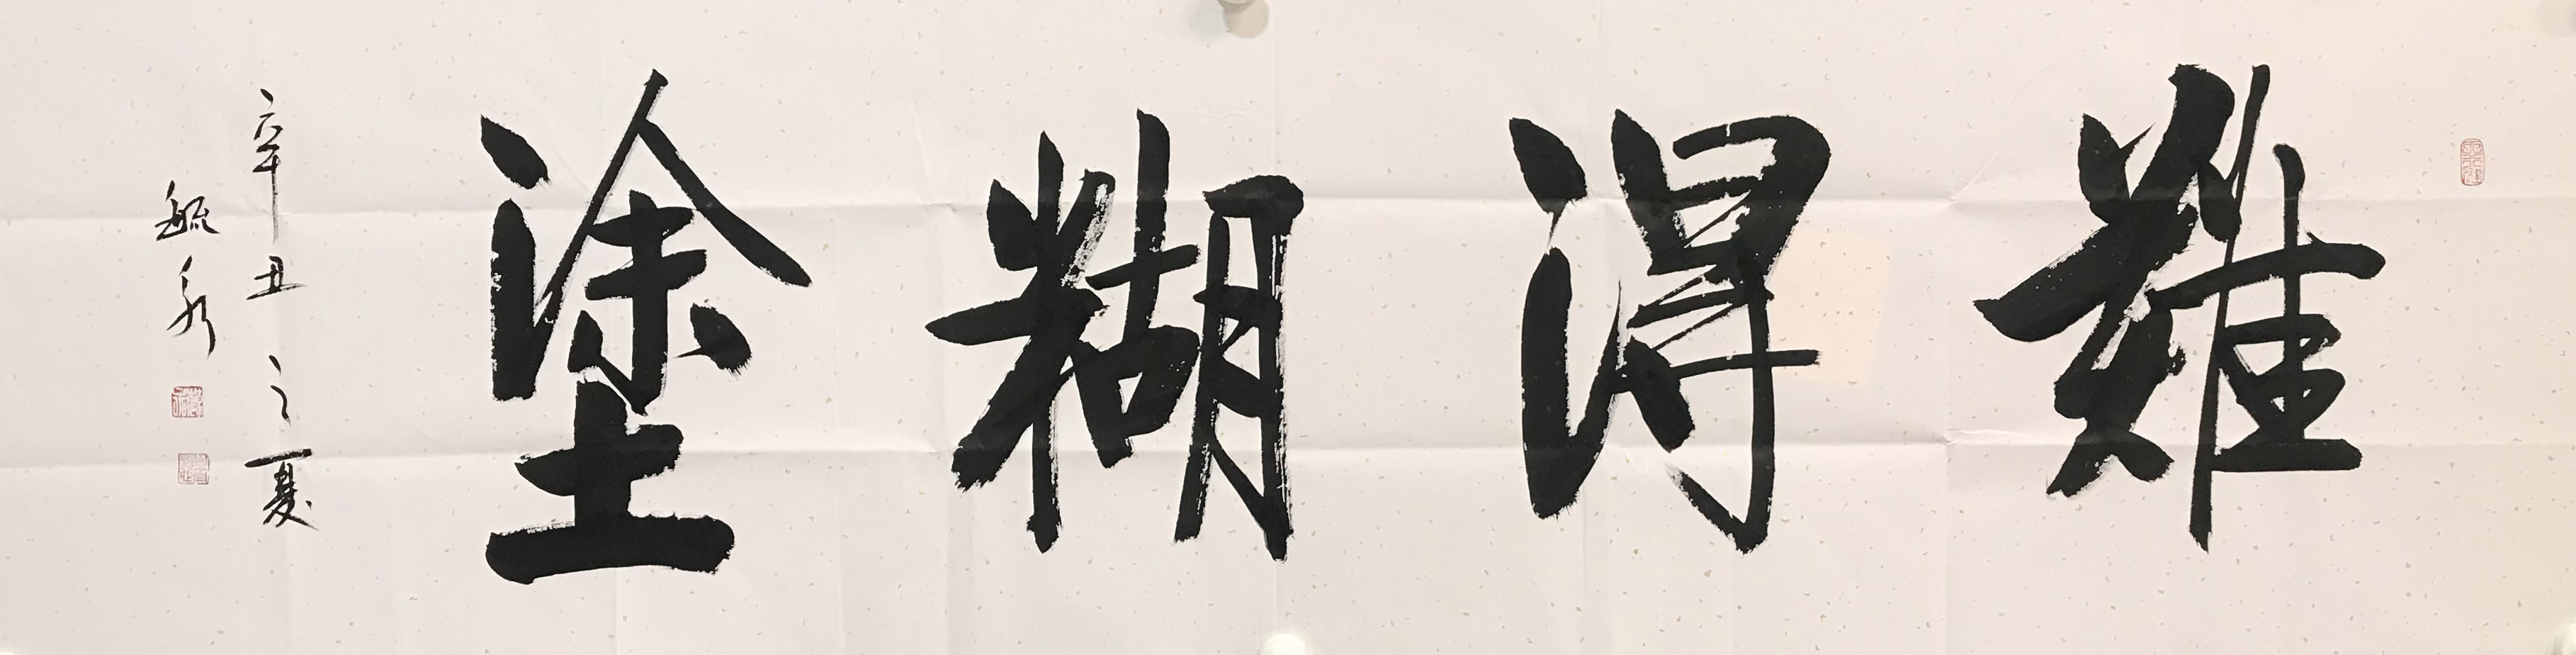 難得糊塗
辛丑之夏
毓泉